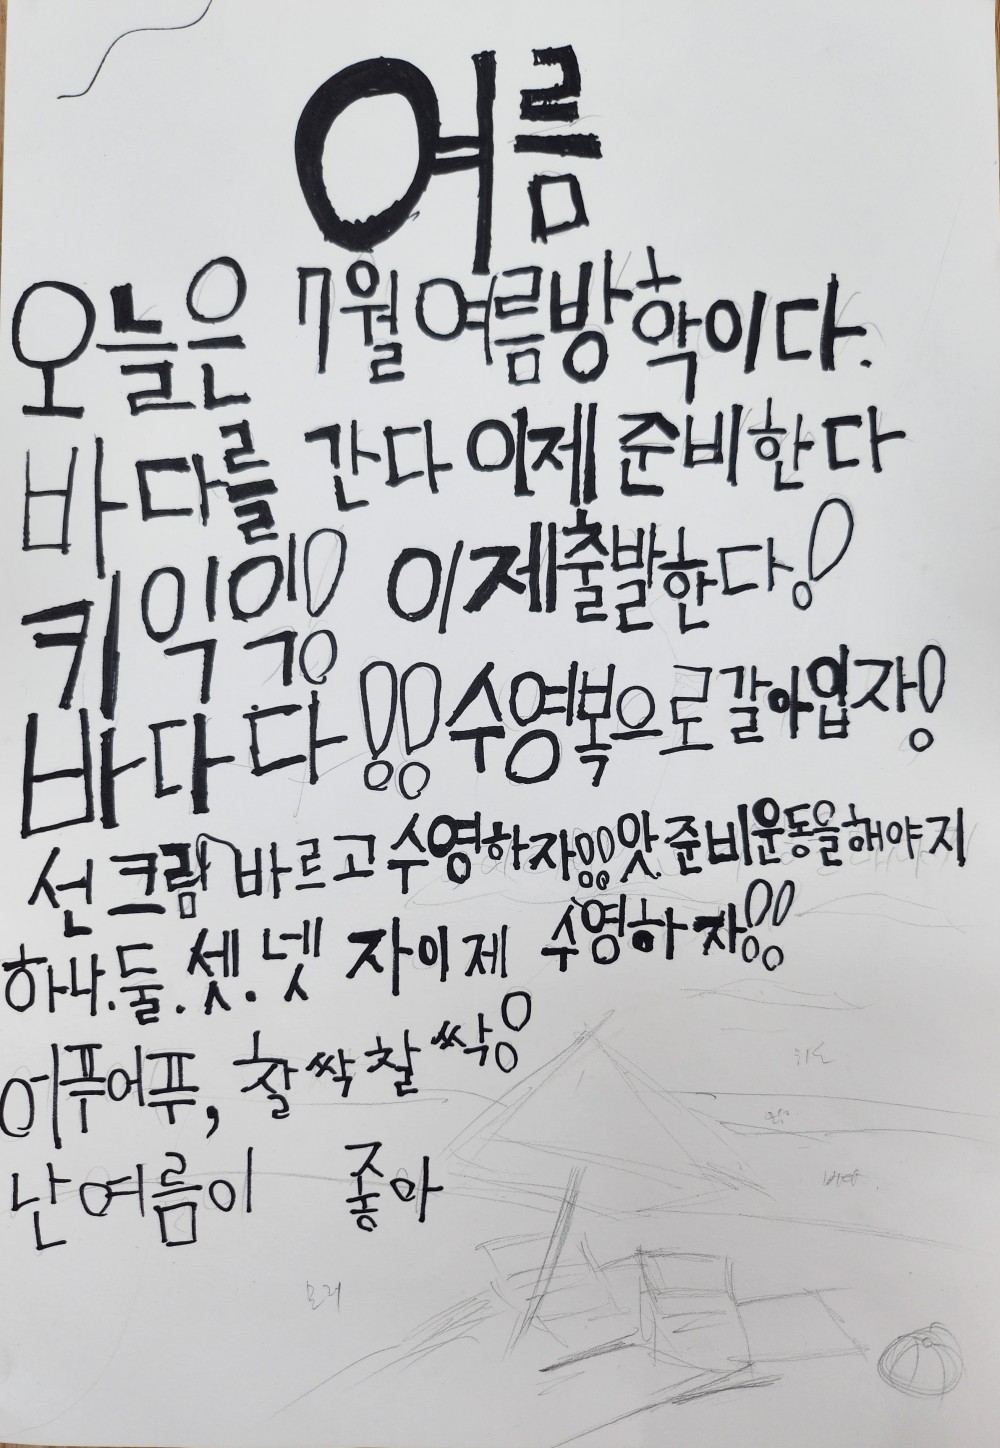 여름
오늘은 7월 여름방학이다.
바다를 간다 이제 준비한다
키익잉! 이제출발한다!
바다다!! 수영복으로갈아입자!
선크람 바르고수영하자!!앗 준비운동을해야지
하나.둘.셋.넷 자이제 수영하자!!
어푸어푸, 찰싹찰싹!
난여름이 좋아
모래